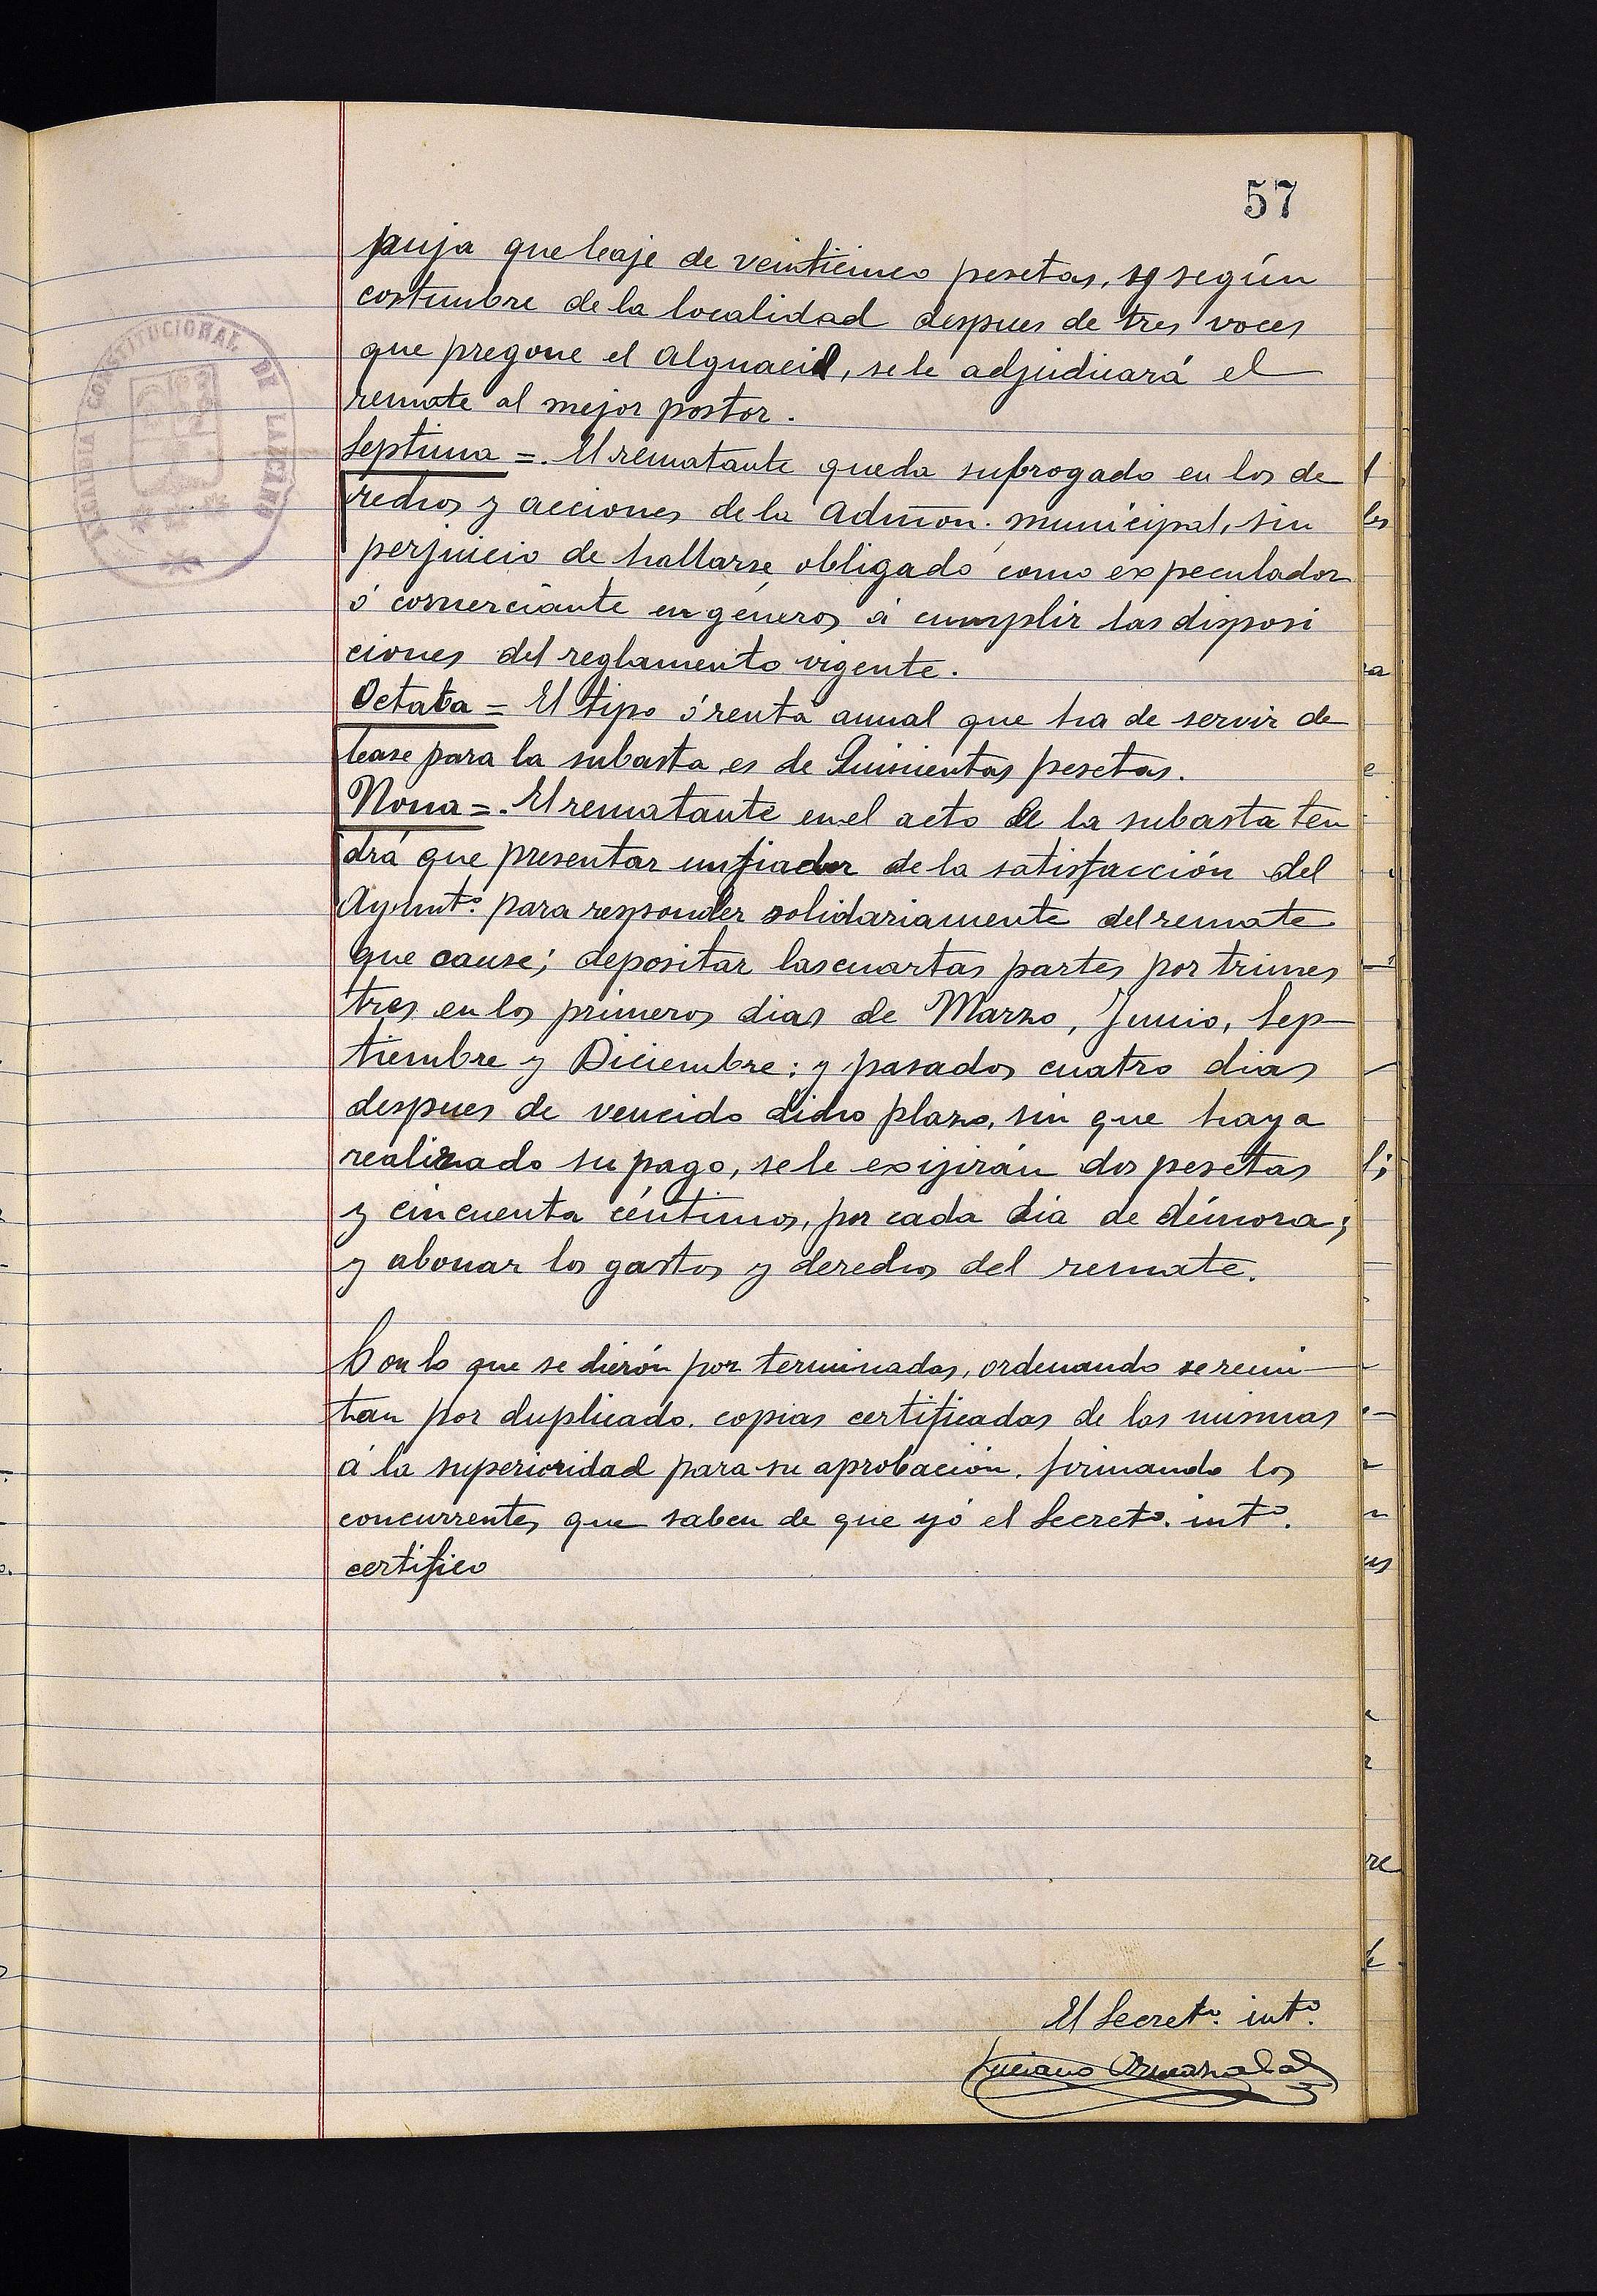 57
puja que baje de veinticinco pesetas, y según
costumbre de la localidad despues de tres voces
que pregone el Alguacil, se le adjudicará el
remate al mejor postor.
Septima =. El rematante queda subrogado en los de
rechos y acciones de la Admon. municipal, sin
perjuicio de hallarse obligado como expeculador
ó comerciante en géneros á cumplir las disposi
ciones del reglamento vigente.
Octaba = El tipo ó renta anual que ha de servir de
base para la subasta es de Quinientas pesetas.
Nona =. El rematante en el acto de la subasta ten
drá que presentar un fiador de la satisfacción del
Ayunt.º para responder solidariamente del remate
que cause; depositar las cuartas partes por trimes
tres en los primeros dias de Marzo, Junio, Sep-
tiembre y Diciembre: y pasados cuatro dias
despues de vencido dicho plazo, sin que haya
realizado su pago, se le exijirán dos pesetas
y cincuenta céntimos, por cada dia de démora;
y abonar los gastos y derechos del remate.
Con lo que se dierón por terminadas, ordenando se remi-
tan por duplicado. copias certificadas de las mismas
á la superioridad para su aprobación. firmando los
concurrentes que saben de que yó el Secretº. intº.
certifico
El Secretº. intº.
Luciano
ALCALDIA CONSTITUCIONAL DE LAZCANO